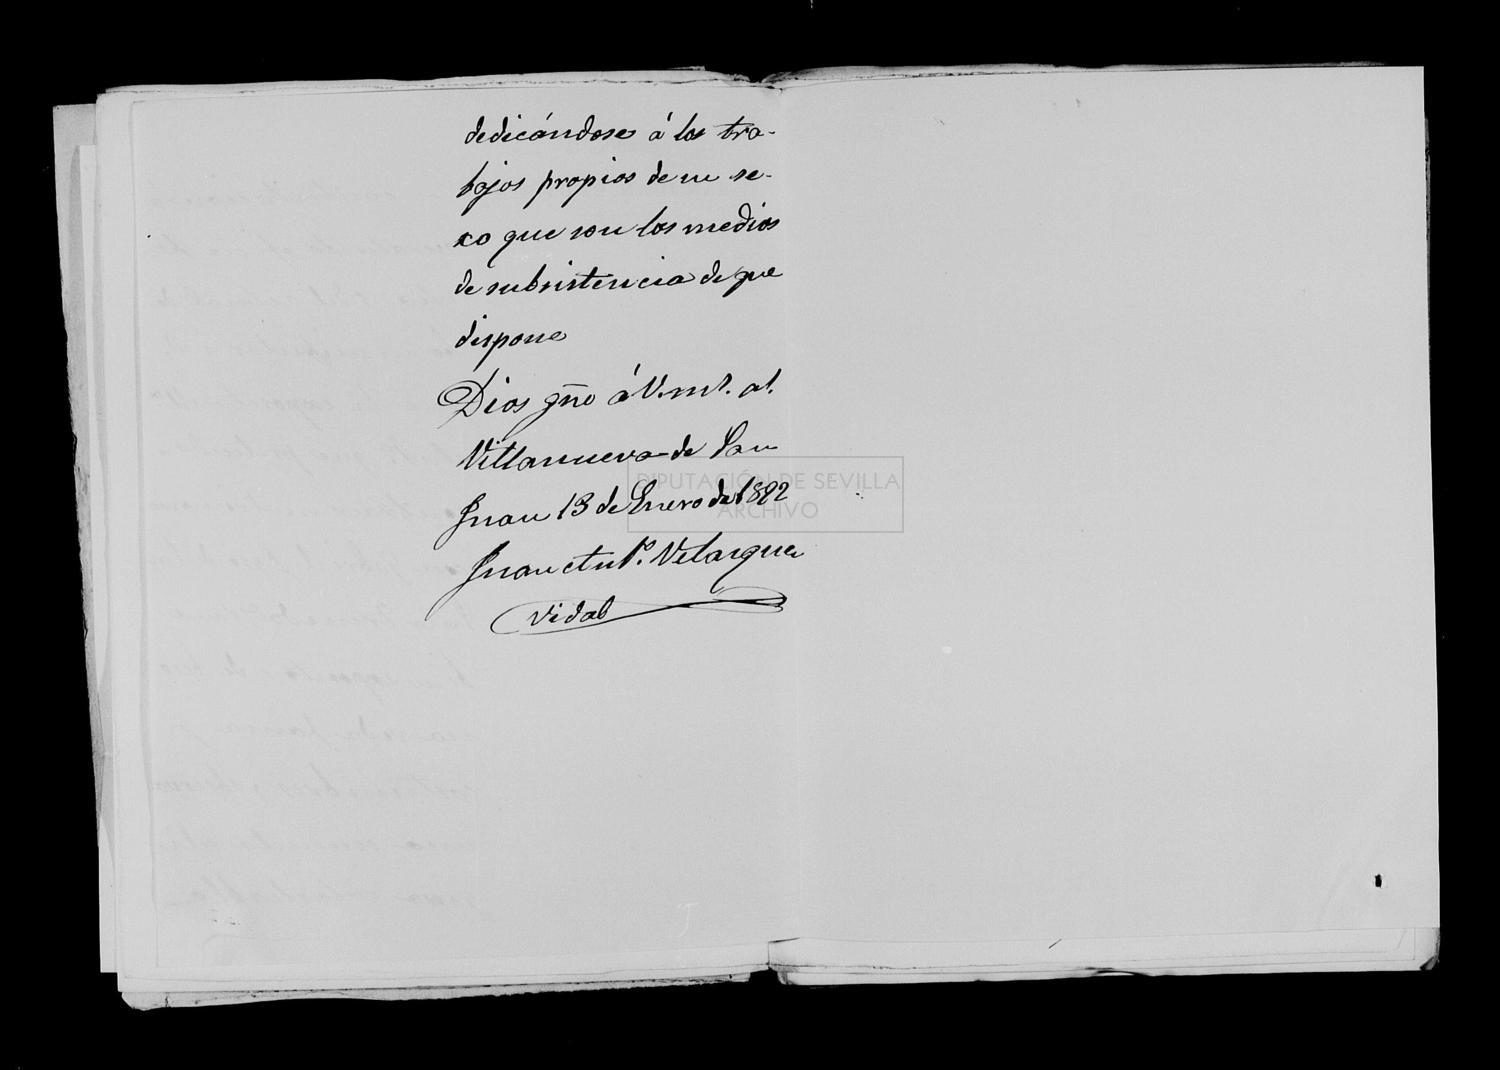 dedicándose á los tra-
bajos propios de su se-
xo que son los medios
de subsistencia de que
dispone
Dios gue á V. m.s. a.s.
Villanueva de San
Juan 13 de Enero de 1882
Juan Ant.º Velazquez
Vidal
DIPUTACIÓN DE SEVILLA
ARCHIVO